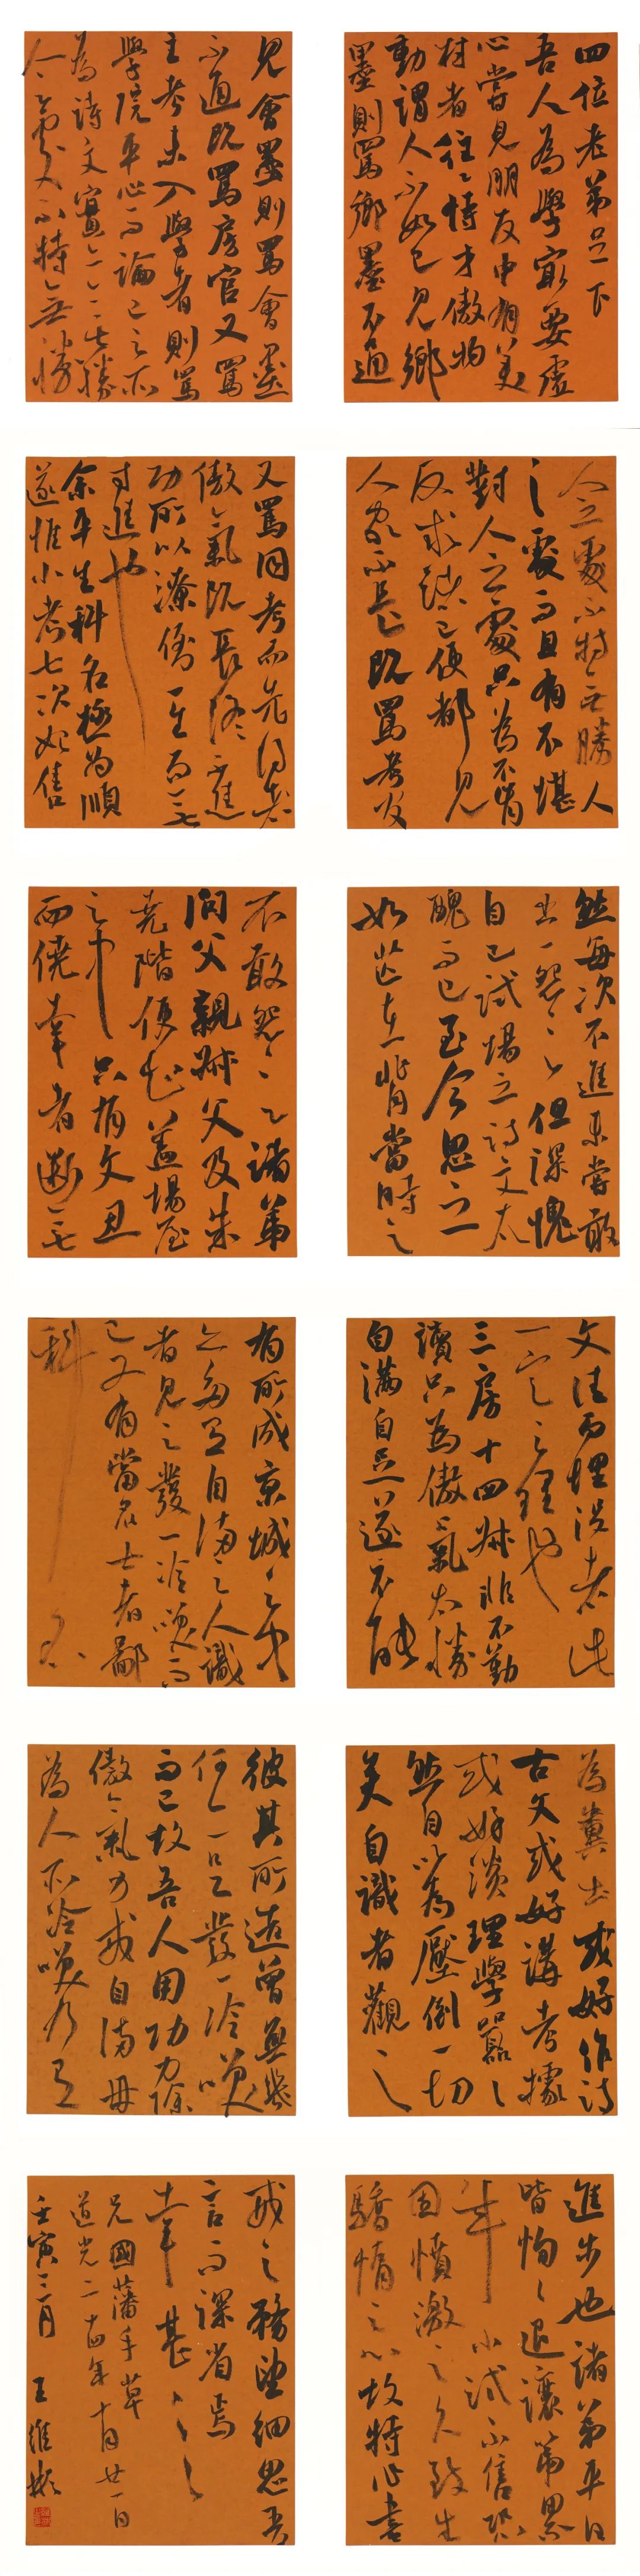 四位老弟足下
吾人為學最要虛
心嘗見朋友中有美
材者往々恃才傲物
動謂人不如己見鄉
墨則罵鄉墨不通
見會墨則罵會墨
不通既罵房官又罵
主考未入學者則罵
學院平心而論己之所
為詩文實亦無勝
人之處不特無勝
人之處不特無勝人
之處而且有不堪
對人之處只為不肯
反求諸己便都見
人家不是既罵考官
又罵同考而先得者
傲氣既長終不進
功所以潦倒一生而無
寸進也
余平生科名極為順
遂惟小考七次始售
然每次不進未嘗敢
出一怨言但深愧
自己試場之詩文太
醜而已至今思之
如芒在背當時之
不敢怨言諸弟
問父親叔父及朱
堯階便知蓋場屋
之中只有文丑
而僥幸者斷無
文佳而埋沒者此
一定之理也
三房十四叔非不勤
讀只為傲氣太勝
自滿自足遂不能
有所成京城之中
亦多有自滿之人識
者見之發一冷笑而
已又有當名士者鄙
科名
為糞土或好作詩
古文或好講考據
或好談理學囂々
然自以為壓倒一切
矣自識者觀之
彼其所造曾無幾
何亦足發一冷笑
而已故吾人用功力除
傲氣力戒自滿毋
為人所冷笑乃有
進步也諸弟平日
皆恂々退讓第累
年小試不售恐
因憤激之久致生
驕惰之心故特作書
戒之務望細思吾
言而深省焉
幸甚々々
兄國藩手草
道光二十四年十月廿一日
壬寅三月 王維彬